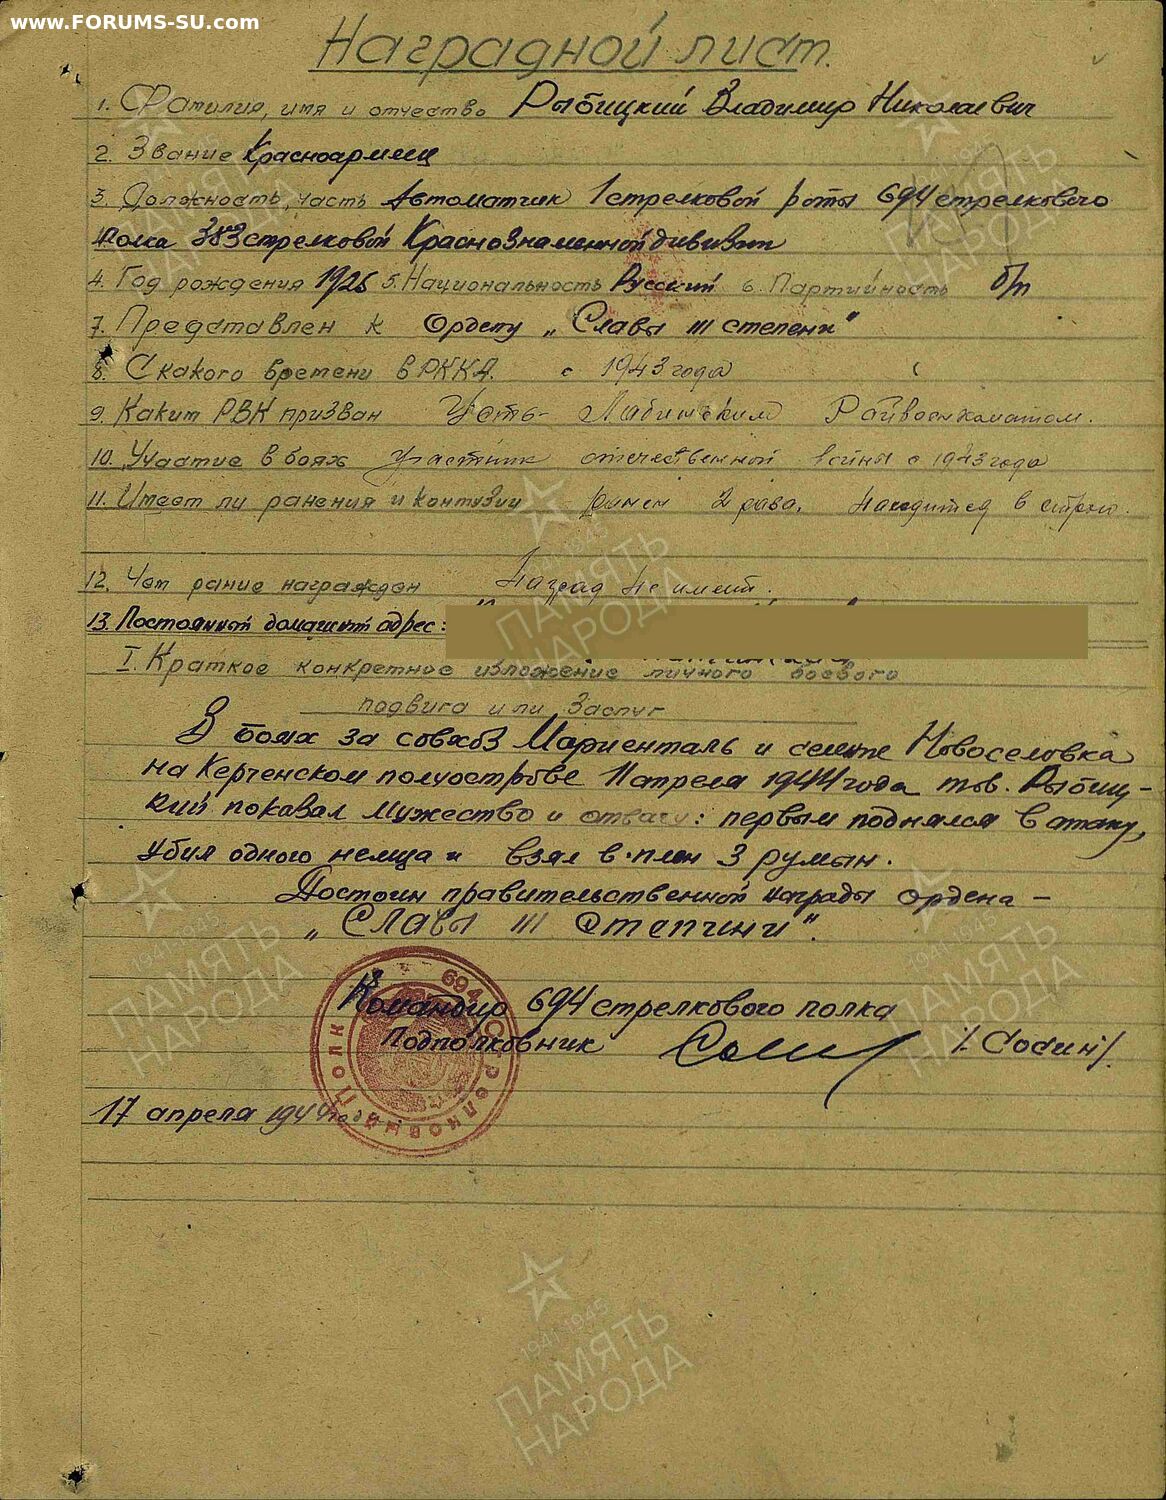 www.FORUMS-SU.com
Наградной лист.
1. Фамилия, имя и отчество Рыбицкий Владимир Николаевич
2. Звание Красноармеец
3. Должность, часть Автоматчик 1 стрелковой роты 694 стрелкового
полка 383 стрелковой Краснознаменной дивизии
4. Год рождения 1926 5. Национальность Русский 6. Партийность б/п
7. Представлен к Ордену „Славы III степени"
8. С какого времени в РККА. с 1943 года
9. Каким РВК призван Усть-Лабинским Райвоенкоматом.
10. Участие в боях участник отечественной войны с 1943 года
11. Имеет ли ранения и контузии ранен 2 раза. Находится в строю.
12. Чем ранее награжден Наград не имеет.
13. Постоянный домашний адрес:
I. Краткое конкретное изложение личного боевого
подвига или заслуг
В боях за совхоз Мариенталь и селение Новоселовка
на Керченском полуострове 11 апреля 1944 года тов. Рыбиц-
кий показал мужество и отвагу: первым поднялся в атаку,
убил одного немца и взял в плен 3 румын.
Достоин правительственной награды ордена –
„Славы III Степени".
Командир 694 стрелкового полка
Подполковник /Совин/.
17 апреля 1944 года
694 Стрелковый Полк
1941-1945
ПАМЯТЬ
НАРОДА